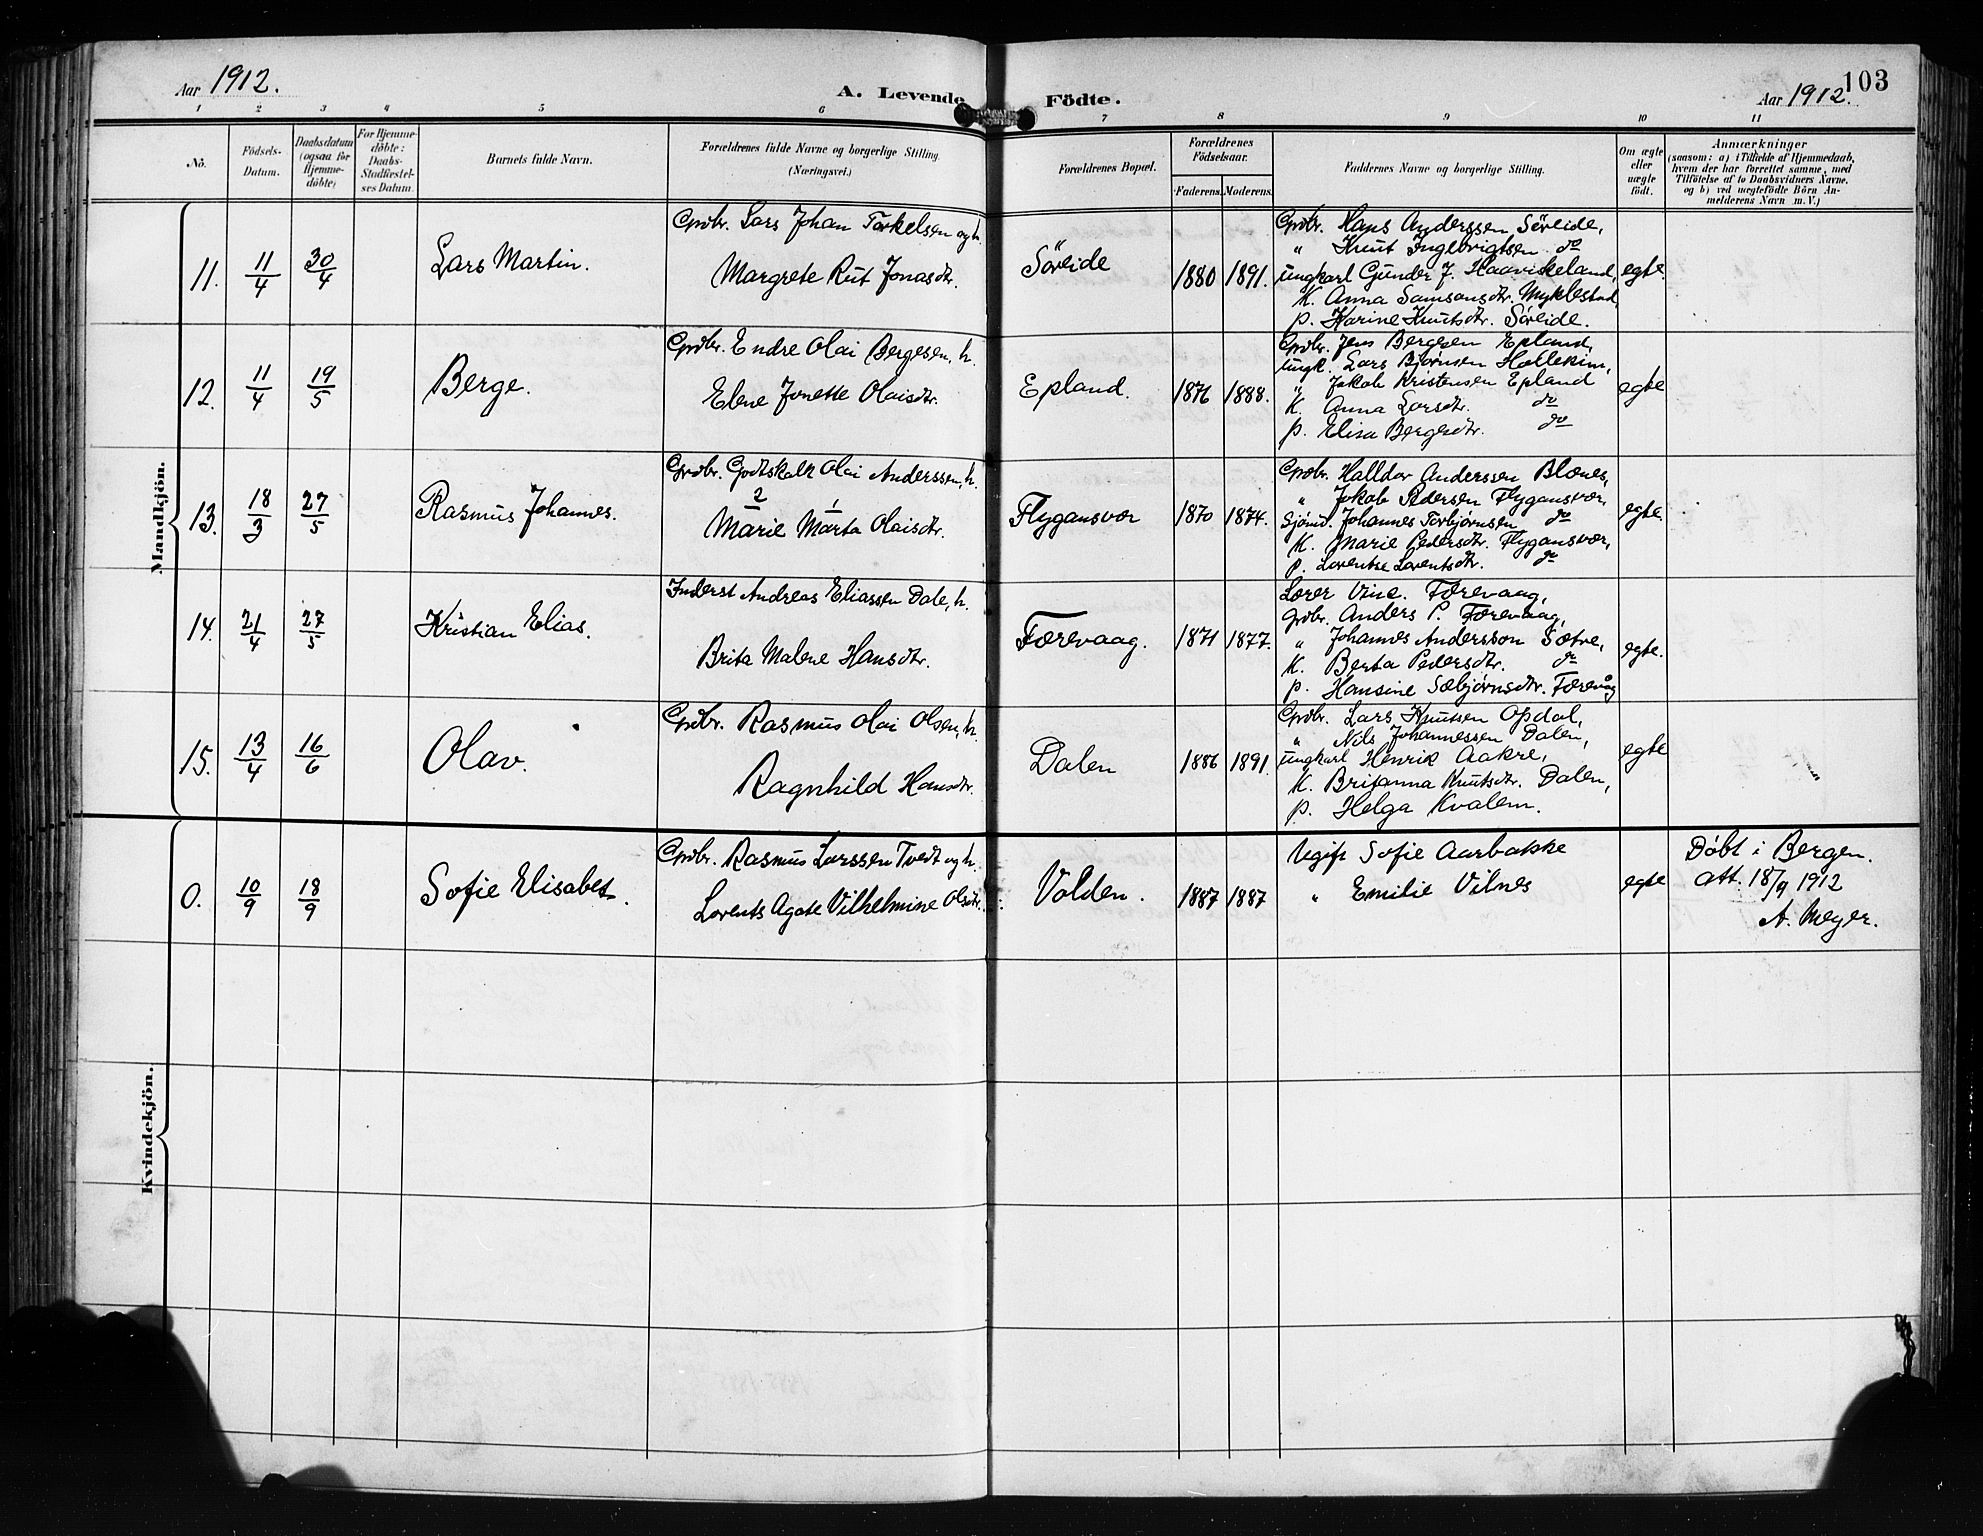 Aar 1912.
A. Levende Födte.
Aar 1912.
103
1 2 3 4 5 6 7 8 9 10 11
No.
Födsels-Datum.
Daabsdatum (ogsaa for Hjemmedöbte)
For Hjemmedöbte: Daabs-Stadfæstelses Datum.
Barnets fulde Navn.
Forældrenes fulde Navne og borgerlige Stilling. (Næringsvei.)
Forældrenes Bopæl.
Forældrenes Födselsaar.
Faderens. Moderens.
Faddernes Navne og borgerlige Stilling.
Om ægte eller uægte födt.
Anmærkninger
(saasom: a) i Tilfælde af Hjemmedaab,
hvem der har forrettet samme, med
Tilföielse af to Daabsvidners Navne.
og b) ved uægtefödte Börn Anmelderens Navn m. V.)
Mandkjön.
11. 11/4 30/4 Lars Martin.
Grdbr. Lars Johan Torkelsen og h.
Margrete Rut Jonasdtr.
Söreide 1880 1891.
Grdbr. Hans Anderssen Söreide,
" Knut Ingebrigtsen do
ungkarl Gunder J. Haaviskeland,
K. Anna Samsonsdtr. Myklestad
p. Karine Knutsdtr. Söreide.
egte.
12. 11/4 19/5 Berge.
Grdbr. Endre Olai Bergesen, h.
Elene Jonette Olaisdtr.
Epland. 1876 1888.
Grdbr. Jens Bergesen Epland,
ungk. Lars Bjørnsen Hollekim,
" Jakob Kristensen Epland
K. Anna Larsdtr. do
p. Elisa Bergesdtr. do
egte
13. 18/3 27/5 Rasmus Johannes.
Grdbr. Godtskalk Olai Anderssen, h.
2 1
Marie Marta Olaisdtr.
Flygansvær 1870 1874.
Grdbr. Halldor Anderssen Blænes,
" Jakob Pedersen Flygansvær,
Sjömd. Johannes Torbjørnsen do
K. Marie Pedersdtr. Flygansvær,
p. Lorentse Lorentsdtr. do
egte.
14. 21/4 27/5 Kristian Elias.
Inderst Andreas Eliassen Dale, h.
Brita Malene Hansdtr.
Færevaag. 1871 1877.
Lærer Vine. Færevaag,
Grdbr. Anders P. Færevaag,
" Johannes Andersson Sætre,
K. Berta Pedersdtr. do
p. Hansine Sæbjørnsdtr. Færevåg
egte.
15. 13/4 16/6 Olav.
Grdbr. Rasmus Olai Olsen, h.
Ragnhild Hansdtr.
Dalen 1886 1891.
Grdbr. Lars Knutsen Opdal,
" Nils Johannessen Dalen,
ungkarl Henrik Aakre,
K. Britanna Knutsdtr. Dalen,
p. Helga Kvalem.
egte
Kvindekjön.
0. 10/9 18/9 Sofie Elisabet.
Grdbr. Rasmus Larssen Tvedt og h.
Lorents Agate Vilhelmine Olsdtr.
Valden. 1887 1887
Ugift Sofie Aarbakke
" Emilie Vilnes
egte
Döbt i Bergen.
Att. 18/9 1912
A. Meyer.